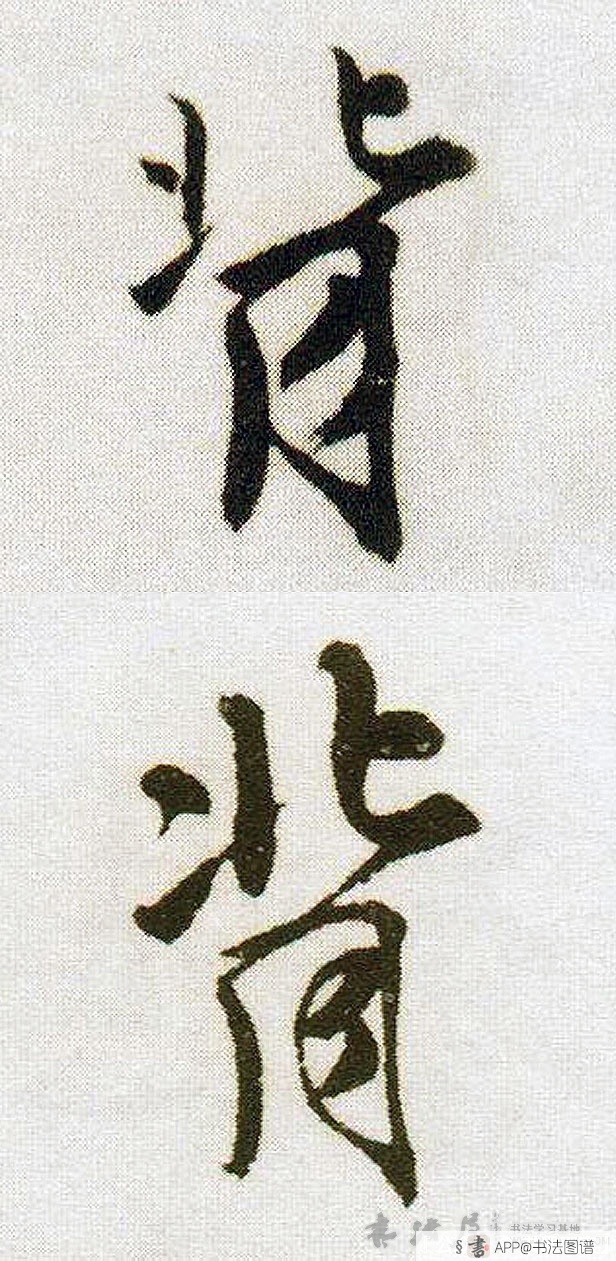 背
背
书法学习基地
§書 APP@书法图谱